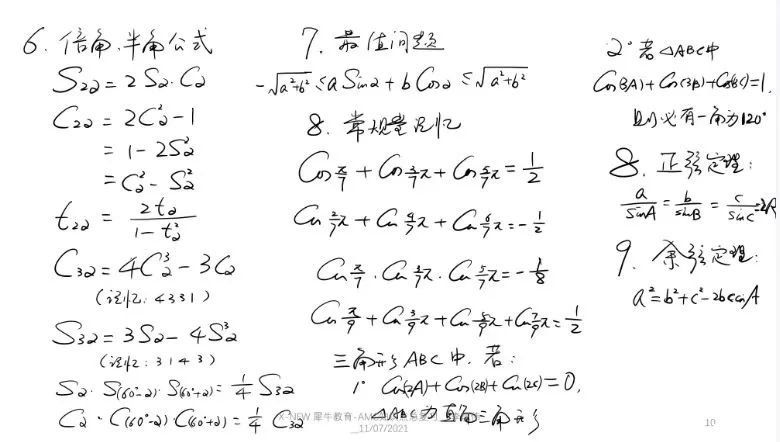 6. 倍角、半角公式
S₂₂ = 2S₂·C₂
C₂₂ = 2C₂² - 1
= 1 - 2S₂²
= C₂² - S₂²
t₂₂ = 2t₂ / (1 - t₂²)
C₃₂ = 4C₂³ - 3C₂
(记忆: 4331)
S₃₂ = 3S₂ - 4S₂³
(记忆: 3143)
S₂·S(60°-2)·S(60°+2) = 1/4 S₃₂
C₂·C(60°-2)C(60°+2) = 1/4 C₃₂
7. 最值问题
-√(a²+b²) ≤ a Sin2 + b Cos2 ≤ √(a²+b²)
8. 常规量记忆
Cos π/7 + Cos 3/7π + Cos 5/7π = 1/2
Cos 2/7π + Cos 4/7π + Cos 6/7π = -1/2
Cos π/7 · Cos 3/7π · Cos 5/7π = -1/8
Cos π/9 + Cos 3/9π + Cos 5/9π + Cos 7/9π = 1/2
三角形ABC中, 若:
1° Cos(2A) + Cos(2B) + Cos(2C) = 0,
△ABC为直角三角形
2° 若△ABC中
Cos(3A) + Cos(3B) + Cos(3C) = 1,
则必有一角为120°
8. 正弦定理:
a/SinA = b/sinB = c/sinC = 2R
9. 余弦定理:
a² = b² + c² - 2bccosA
X-NEW 犀牛教育-AMC
11/07/2021
10